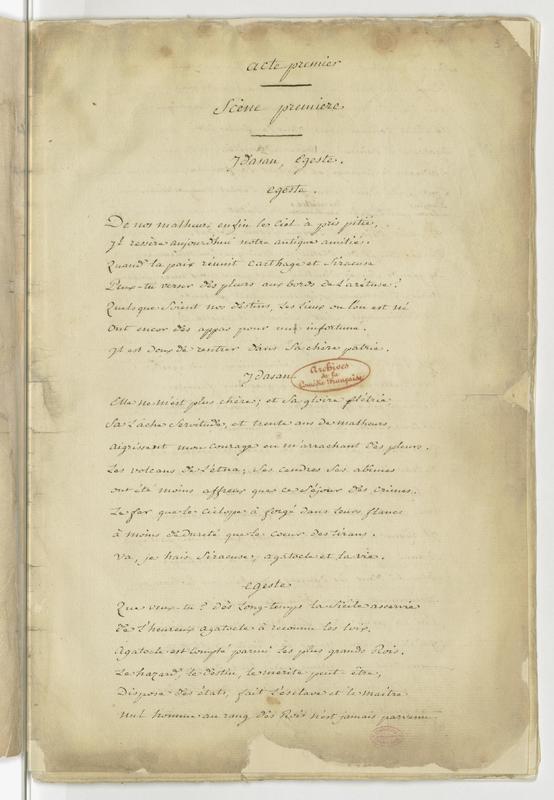 acte premier
Scène premiere
Ydasan, Egeste.
egeste.
De nos malheurs enfin le Ciel à pris pitié,
Yl ressere aujourd'hui notre antique amitié.
Quand la paix réunit Carthage et Siracuse
Peux-tu verser des pleurs aux bords de L'arétuse?
Quelsque soient nos destins, les lieux ou l'on est né
Ont encor des appas pour un infortuné.
Yl est doux de rentrer dans sa chère patrie.
Ydasan
Archives
de la
Comédie Française
Elle ne m'est plus chère; et sa gloire flétrie
Sa Lache Servitude, et trente ans de malheurs,
aigrissent mon courage en m'arrachant des pleurs.
Les volcans de L'etna, ses cendres ses abîmes
ont été moins affreux que ce séjour des crimes.
Le fer que le ciclope à forgé dans leurs flancs
à moins de dureté que le coeur des tirans.
Va, je hais Siracuse, agatocle et la vie.
egeste
Que veux-tu? dès Long-temps la Sicile asservie
de L'heureux agatocle à reconnu les loix.
Agatocle est compté parmi les plus grands Rois.
Le hazard, le destin, le mérite peut-être,
Dispose des états, fait L'esclave et le maitre
nul homme au rang des Rois n'est jamais parvenu